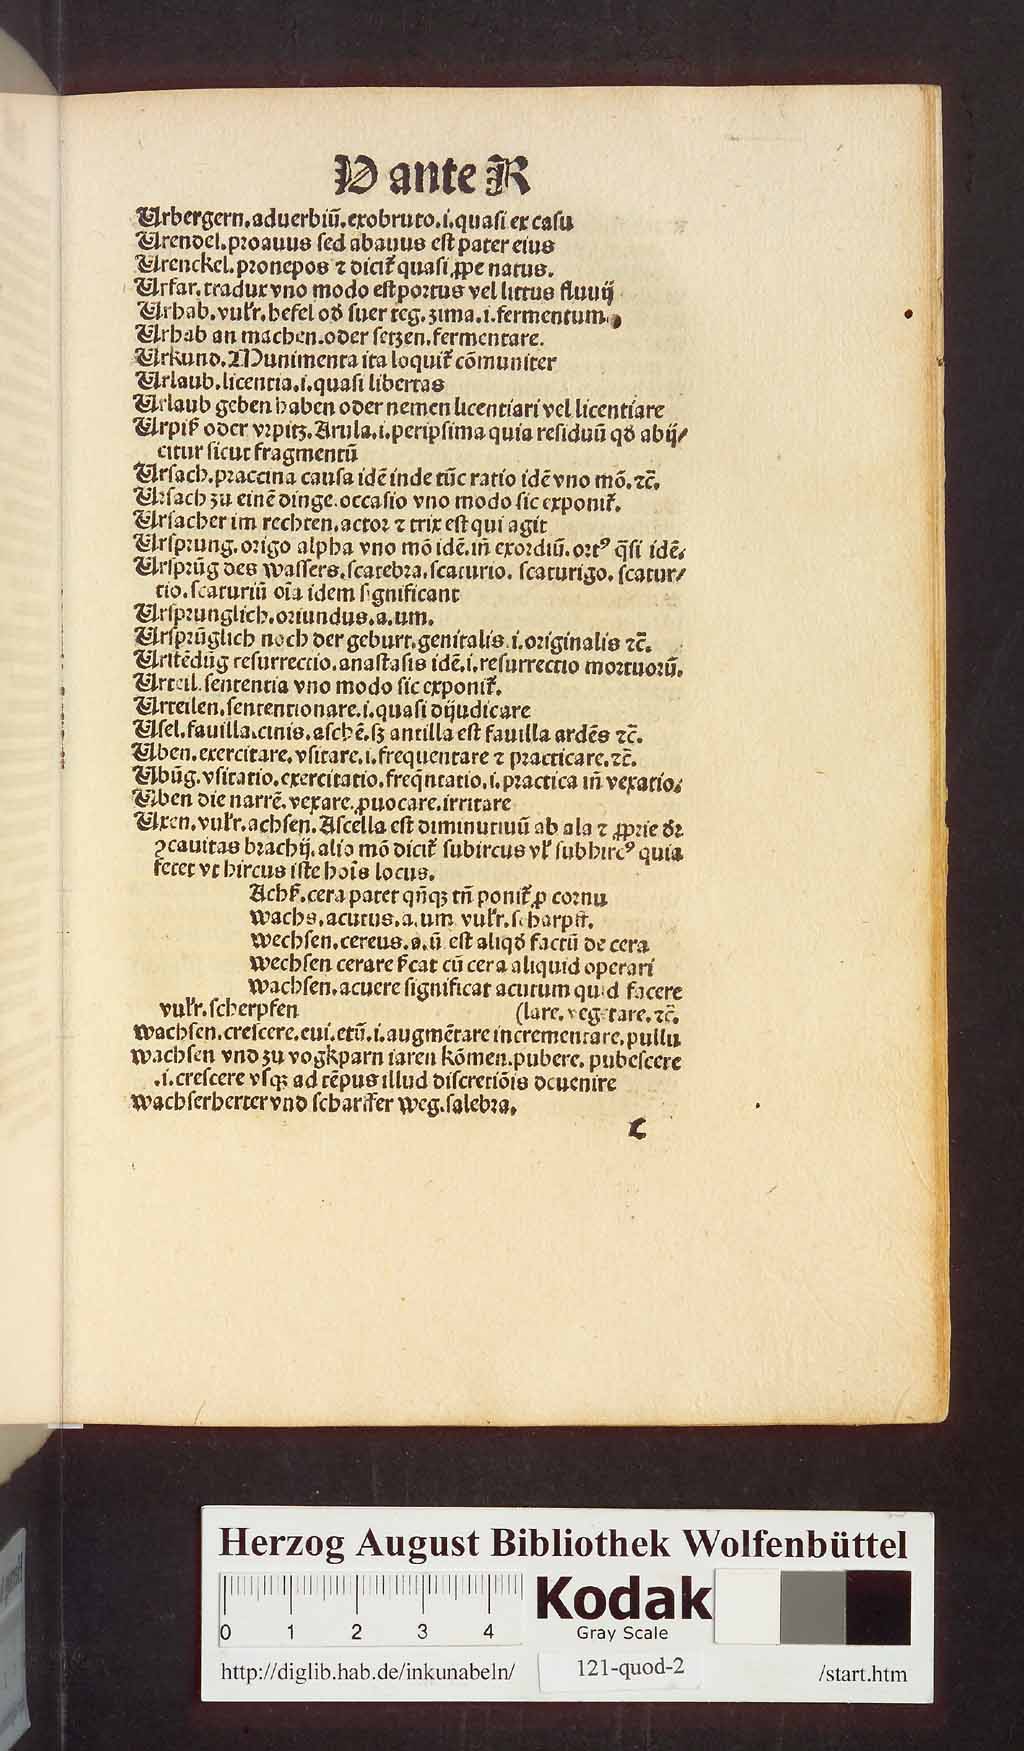 V ante R
Urbergern.aduerbiū.exobruto.i.quasi ex casu
Urendel.proauus sed abauus est pater eius
Urenckel.pronepos ⁊ dicit᷑ quasi ꝓpe natus.
Urfar.tradux vno modo est portus vel littus fluuij
Urhab.vulr̃.hefel od̛ suer teg.zima.i.fermentum.
Urhab an machen.oder setzen.fermentare.
Urkund.Munimenta ita loquit᷑ cōmuniter
Urlaub.licentia.i.quasi libertas
Urlaub geben haben oder nemen licentiari vel licentiare
Urpiß oder vrpitz.Arula.i.peripsima quia residuū qd̛ abij/
citur sicut fragmentū
Ursach.praccina causa idē inde tūc ratio idē vno mō.⁊c̄.
Ursach zu einē dinge.occasio vno modo sic exponit᷑.
Ursacher im rechten.actor ⁊ trix est qui agit
Ursprung.origo alpha vno mō idē.iñ exordiū.ortꝰ q̄si idē.
Ursprūg des wassers.scatebra.scaturio.scaturigo.scatur/
tio.scaturiū oīa idem significant
Ursprunglich.oriundus.a.um.
Ursprūglich noch der geburt.genitalis.i.originalis ⁊c̄.
Urstēdūg resurrectio.anastasis idē.i.resurrectio mortuorū.
Urteil.sententia vno modo sic exponit᷑.
Urteilen.sententionare.i.quasi dijudicare
Usel.fauilla.cinis.aschē.sꝫ antilla est fauilla ardēs ⁊c̄.
Uben.exercitare.vsitare.i.frequentare ⁊ practicare.⁊c̄.
Ubūg.vsitatio.exercitatio.freq̄ntatio.i.practica iñ vexatio.
Uben die narrē.vexare.ꝓuocare.irritare
Uxen.vulr̃.achsen.Ascella est diminutiuū ab ala ⁊ ꝓprie d̛r
ꝯcauitas brachij.alio mō dicit᷑ subircus vl̛ subhircꝰ quia
fetet vt hircus iste hoīs locus.
Achß.cera patet qñqꝫ tñ ponit᷑ ꝓ cornu
wachs.acutus.a.um vulr̃.scharpff.
wechsen.cereus.a.ū est aliqd̛ factū de cera
wechsen cerare ſ̛cat cū cera aliquid operari
wachsen.acuere significat acutum quid facere
vulr̃.scherpfen (lare.vegetare.⁊c̄.
wachsen.crescere.eui.etū.i.augmētare incrementare.pullu
wachsen vnd zu vogkparn iaren kōmen.pubere.pubescere
.i.crescere vsqꝫ ad tēpus illud discretiōis deuenire
wachserherter vnd scharffer weg.salebra.
Herzog August Bibliothek Wolfenbüttel
0 1 2 3 4
Kodak
Gray Scale
http://diglib.hab.de/inkunabeln/ 121-quod-2 /start.htm